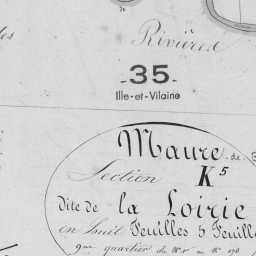 Rivières
- 35 -
Ille-et-Vilaine
Maure de
Section K⁵
dite de la Loirie
en huit Feuilles 5 Feuille
9me quartier du N°1 au N°